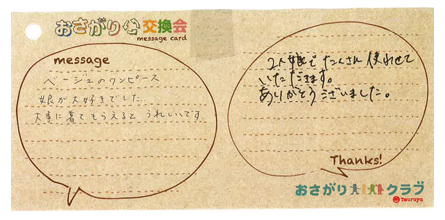 おさがり交換会
message card
message
ベージュのワンピース
娘が大好きでした
大事に着てもらえると うれしいです
2人娘でたくさん 使わせて
いただきます。
ありがとうございました。
Thanks!
おさがり クラブ
Tsuruya